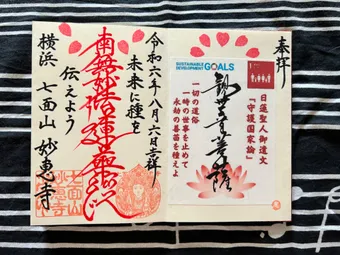 奉拝
日蓮聖人御遺文
「守護国家論」
SUSTAINABLE DEVELOPMENT GOALS
1
観世音菩薩
一切の道俗
一時の世事を止めて
永劫の善苗を種えよ
令和六年八月六日吉祥
未来に種を
南無妙法蓮華経
伝えよう
横浜 七面山 妙恵寺